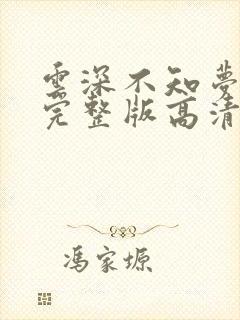 雲深不知夢
完整版高清
馮家塬